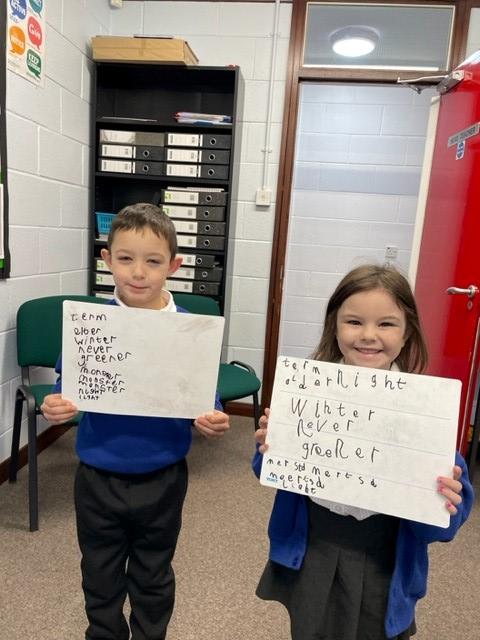 term
elder
winter
never
greener
monster
monster
night
light
term
elder Night
Winter
never
greener
merstd mertsd
meertsd
light
Give
HEAD TEACHER